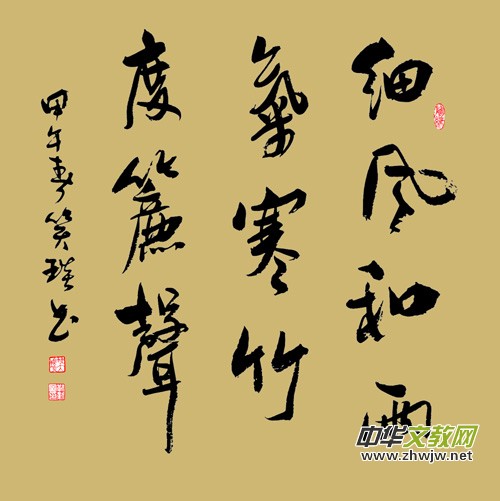 细风和雨
氣寒竹
度簾聲
甲午春笑琰书
中华文教网
www.zhwjw.net